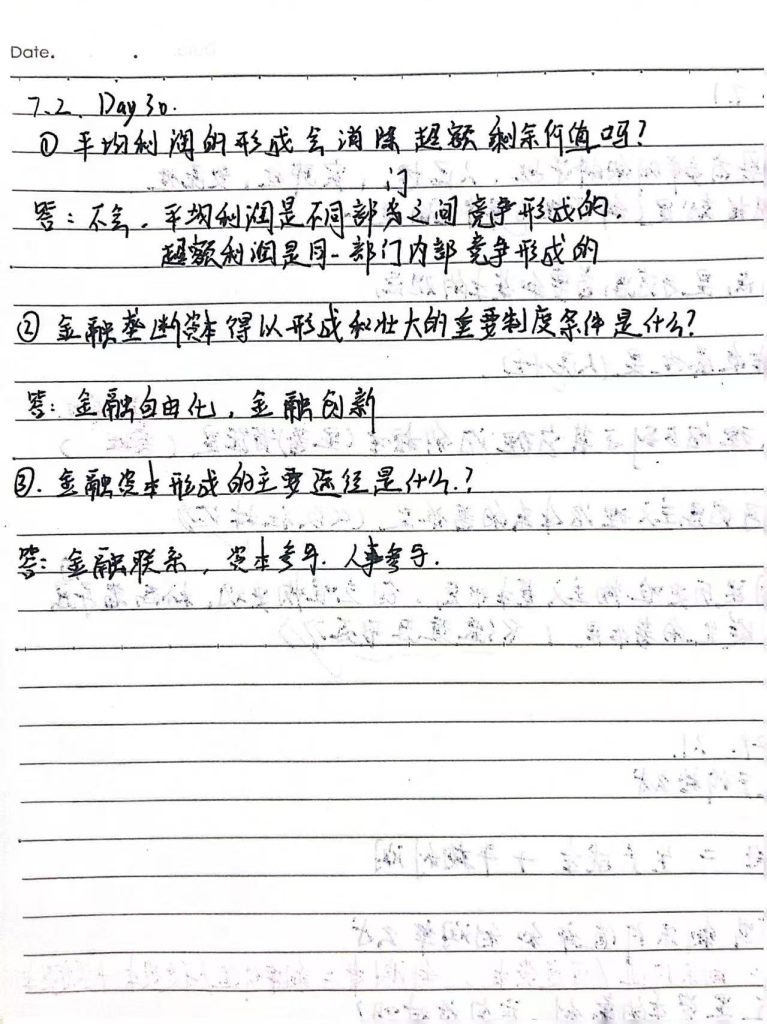 Date.
7.2. Day 30.
① 平均利润的形成会消除超额剩余价值吗?
门
答:不会,平均利润是不同部类之间竞争形成的.
超额利润是同一部门内部竞争形成的
② 金融垄断资本得以形成和壮大的重要制度条件是什么?
答:金融自由化,金融创新
③. 金融资本形成的主要途径是什么.?
答:金融联系,资本参与.人事参与.